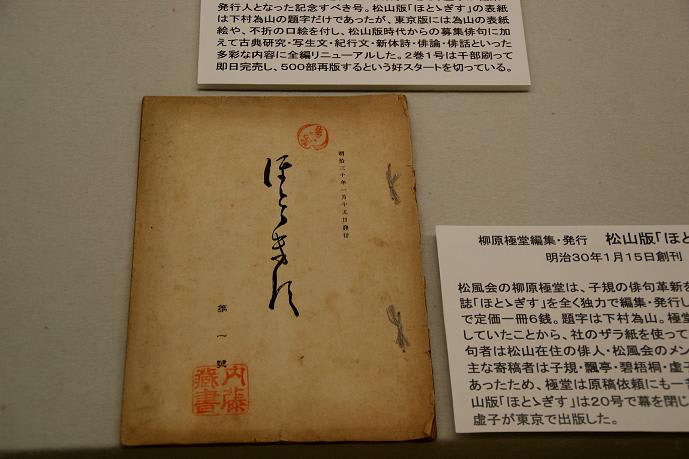 発行人となった記念すべき号。松山版「ほとゝぎす」の表紙
は下村為山の題字だけであったが、東京版には為山の表紙
絵や、不折の口絵を付し、松山版時代からの募集俳句に加
えて古典研究・写生文・紀行文・新体詩・俳論・俳話といった
多彩な内容に全編リニューアルした。2巻1号は千部刷って
即日完売し、500部再版するという好スタートを切っている。
明治三十年一月十五日発行
ほとゝぎす
第一號
内藤
蔵書
柳原極堂編集・発行 松山版「ほと
明治30年1月15日創刊
松風会の柳原極堂は、子規の俳句革新を
誌「ほとゝぎす」を全く独力で編集・発行し
で定価一冊6銭。題字は下村為山。極堂
していたことから、社のザラ紙を使って
句者は松山在住の俳人・松風会のメン
主な寄稿者は子規・飄亭・碧梧桐・虚子
あったため、極堂は原稿依頼にも一苦
山版「ほとゝぎす」は20号で幕を閉じ
虚子が東京で出版した。